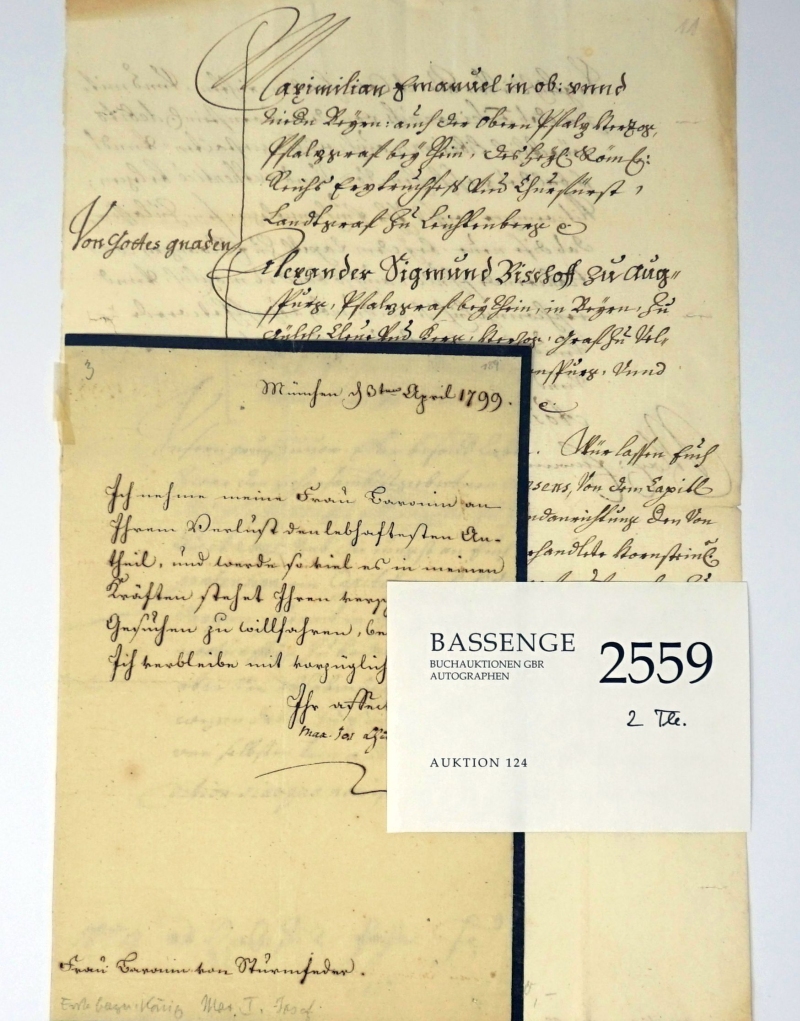 Maximilian Emanuel in ob: vnnd
Nidn Bayrn: auch der Obern Pfalz Herzog,
Pfalzgraf bey Rhein, des Heyl: Röm:
Reichs Erztruchseß und Churfürst,
Landtgraf zu Leichtenberg
Von Gottes gnaden
Alexander Sigmund Bisshoff zu Aug=
spurg, Pfalzgraf bey Rhein, in Bayrn, zu
Gülch, Cleve und Berg, Herzog, Graf zu Vel-
nspurg, Vnnd
Wür lassen Euch
von dem Capitl
den von
3
München d 3ten April 1799.
Ich nehme meine Frau Baronin an
Ihrem Verlust den lebhaftesten An-
theil, und werde so viel es in meinen
Kräften stehet Ihren
Gesuchen zu willfahren, be
Ich verbleibe mit vorzüglich
Ihr affec
Max Jos
Frau Baronin von Sturmfeder.
König Max. I. Josef
BASSENGE
BUCHAUKTIONEN GBR
AUTOGRAPHEN
2559
2 Tle.
AUKTION 124